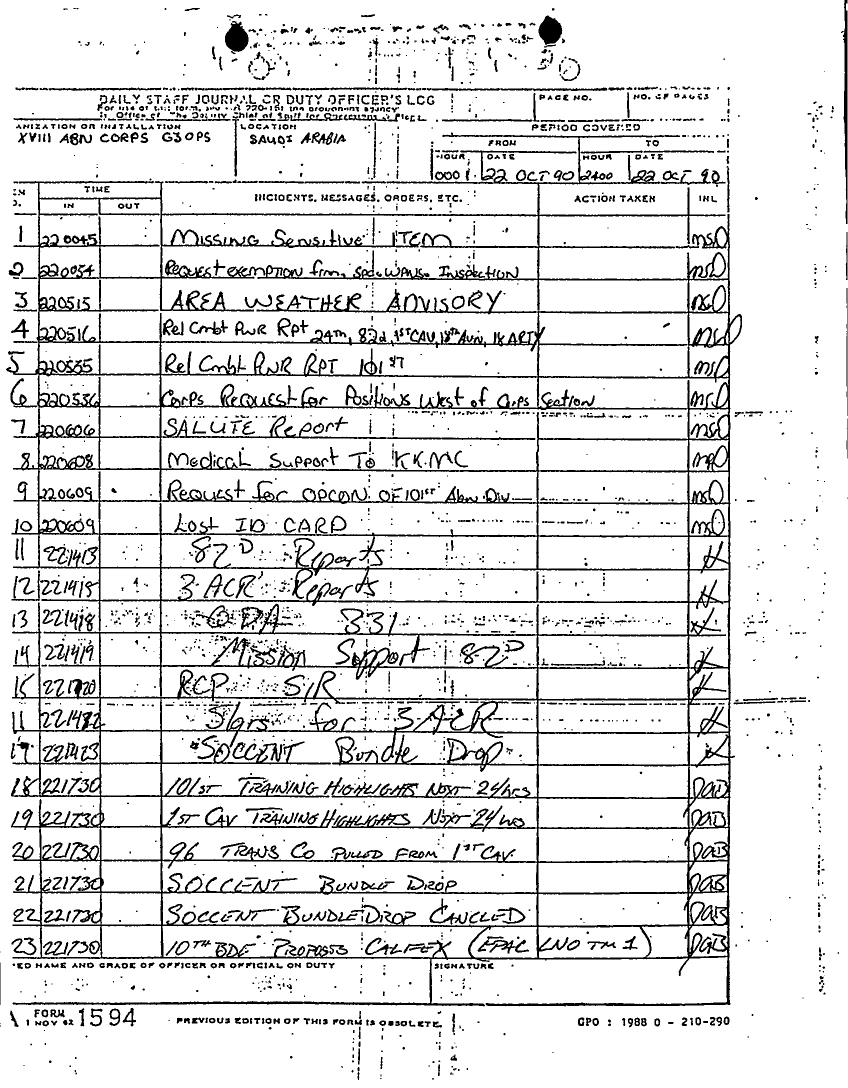 DAILY STAFF JOURNAL OR DUTY OFFICER'S LOG
PAGE NO.
NO. OF PAGES
ANIZATION OR INSTALLATION
XVIII ABN CORPS G3OPS
LOCATION
SAUDI ARABIA
PERIOD COVERED
FROM
TO
HOUR
DATE
HOUR
DATE
0001
22 OCT 90
2400
22 OCT 90
TIME
IN
OUT
INCIDENTS, MESSAGES, ORDERS, ETC.
ACTION TAKEN
INL
1 220045 Missing Sensitive ITEM msD
2 220054 Request exemption from Inspection msD
3 220515 AREA WEATHER ADVISORY msD
4 220516 Rel Cmbt PWR Rpt 24th, 82d, 1ST CAV, 18th Avn, 18 ARTY msD
5 220535 Rel Cmbt PWR RPT 101st msD
6 220556 Corps Request for Positions West of Corps Section msD
7 220606 SALUTE Report msD
8 220608 Medical Support To KKMC msD
9 220609 Request for OPCON OF 101st Abn Div msD
10 220609 Lost ID CARD msD
11 221413 82D Reports
12 221415 3 ACR Reports
13 221418 ODA 331
14 221419 Mission Support 82D
15 RCP SIR
11 Sgrs for 3 ACR
17 221423 "SOCCENT Bundle Drop"
18 221730 101ST TRAINING HIGHLIGHTS NEXT 24/HRS DAB
19 221730 1ST CAV TRAINING HIGHLIGHTS NEXT 24/HRS DAB
20 221730 96 TRANS CO PULLED FROM 1ST CAV. DAB
21 221730 SOCCENT BUNDLE DROP DAB
22 221730 SOCCENT BUNDLE DROP CANCLED DAB
23 221730 10TH BDE PROPOSES CALFEX (EPAC LNO TM 1) DAB
ED NAME AND GRADE OF OFFICER OR OFFICIAL ON DUTY
SIGNATURE
A FORM 1 NOV 62 1594
PREVIOUS EDITION OF THIS FORM IS OBSOLETE.
GPO : 1988 O - 210-290